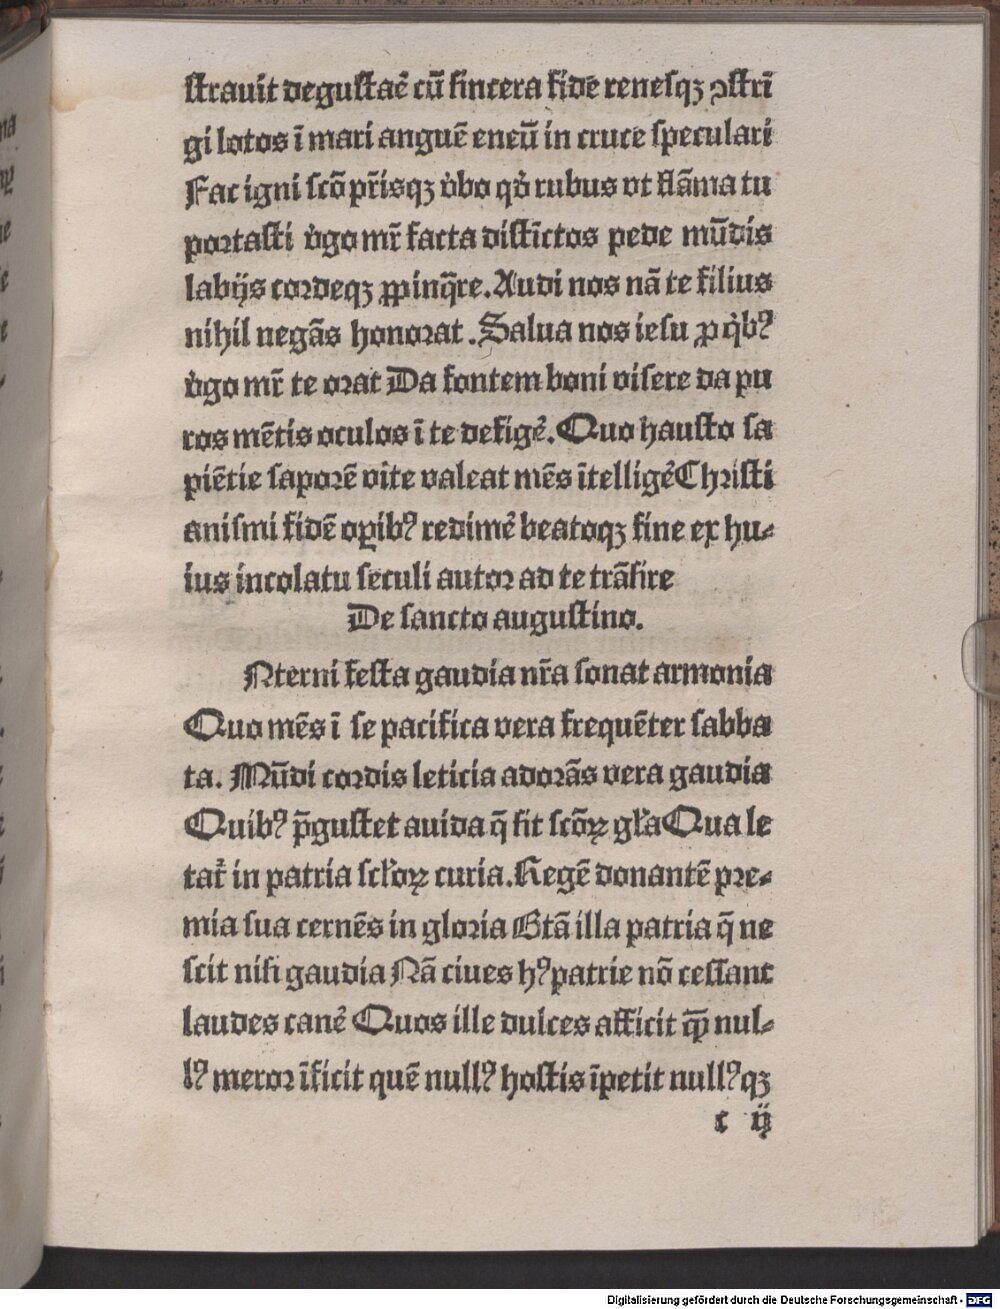 ſtrauit deguſtaē cū ſincera fide reneſqꝫ ꝯſtrī
gi lotos ī mari anguē eneū in cruce ſpeculari
Fac igni ſcō pr̄iſqꝫ v̓bo qd̓ rubus vt flāma tu
portaſti v̓go mr̄ facta diſtīctos pede mūdis
labijs cordeqꝫ ꝓpinq̄re. Audi nos nā te filius
nihil negās honorat. Salua nos ieſu ꝓ q̇bꝰ
v̓go mr̄ te orat Da fontem boni viſere da pu
ros mētis oculos ī te defigē. Quo hauſto ſa
piētie ſaporē vite valeat mēs ītelligē Chriſti
aniſmi fidē oꝑibꝰ redimē beatoqꝫ fine ex hu⸗
ius incolatu ſeculi autor ad te trāſire
De ſancto auguſtino.
Nterni feſta gaudia nr̄a ſonat armonia
Quo mēs ī ſe pacifica vera frequēter ſabba
ta. Mūdi cordis leticia adorās vera gaudia
Quibꝰ p̄guſtet auida q̄ ſit ſcōꝝ gl̓a Qua le
tat̄ in patria ſcl̓oꝝ curia. Regē donantē pre⸗
mia ſua cernēs in gloria Btā illa patria q̄ ne
ſcit niſi gaudia Nā ciues hꝰ patrie nō ceſſant
laudes canē Quos ille dulces afficit qꝫ̄ nul⸗
lꝰ meror īficit quē nullꝰ hoſtis īpetit nullꝰqꝫ
c ij
Digitalisierung gefördert durch die Deutsche Forschungsgemeinschaft - DFG